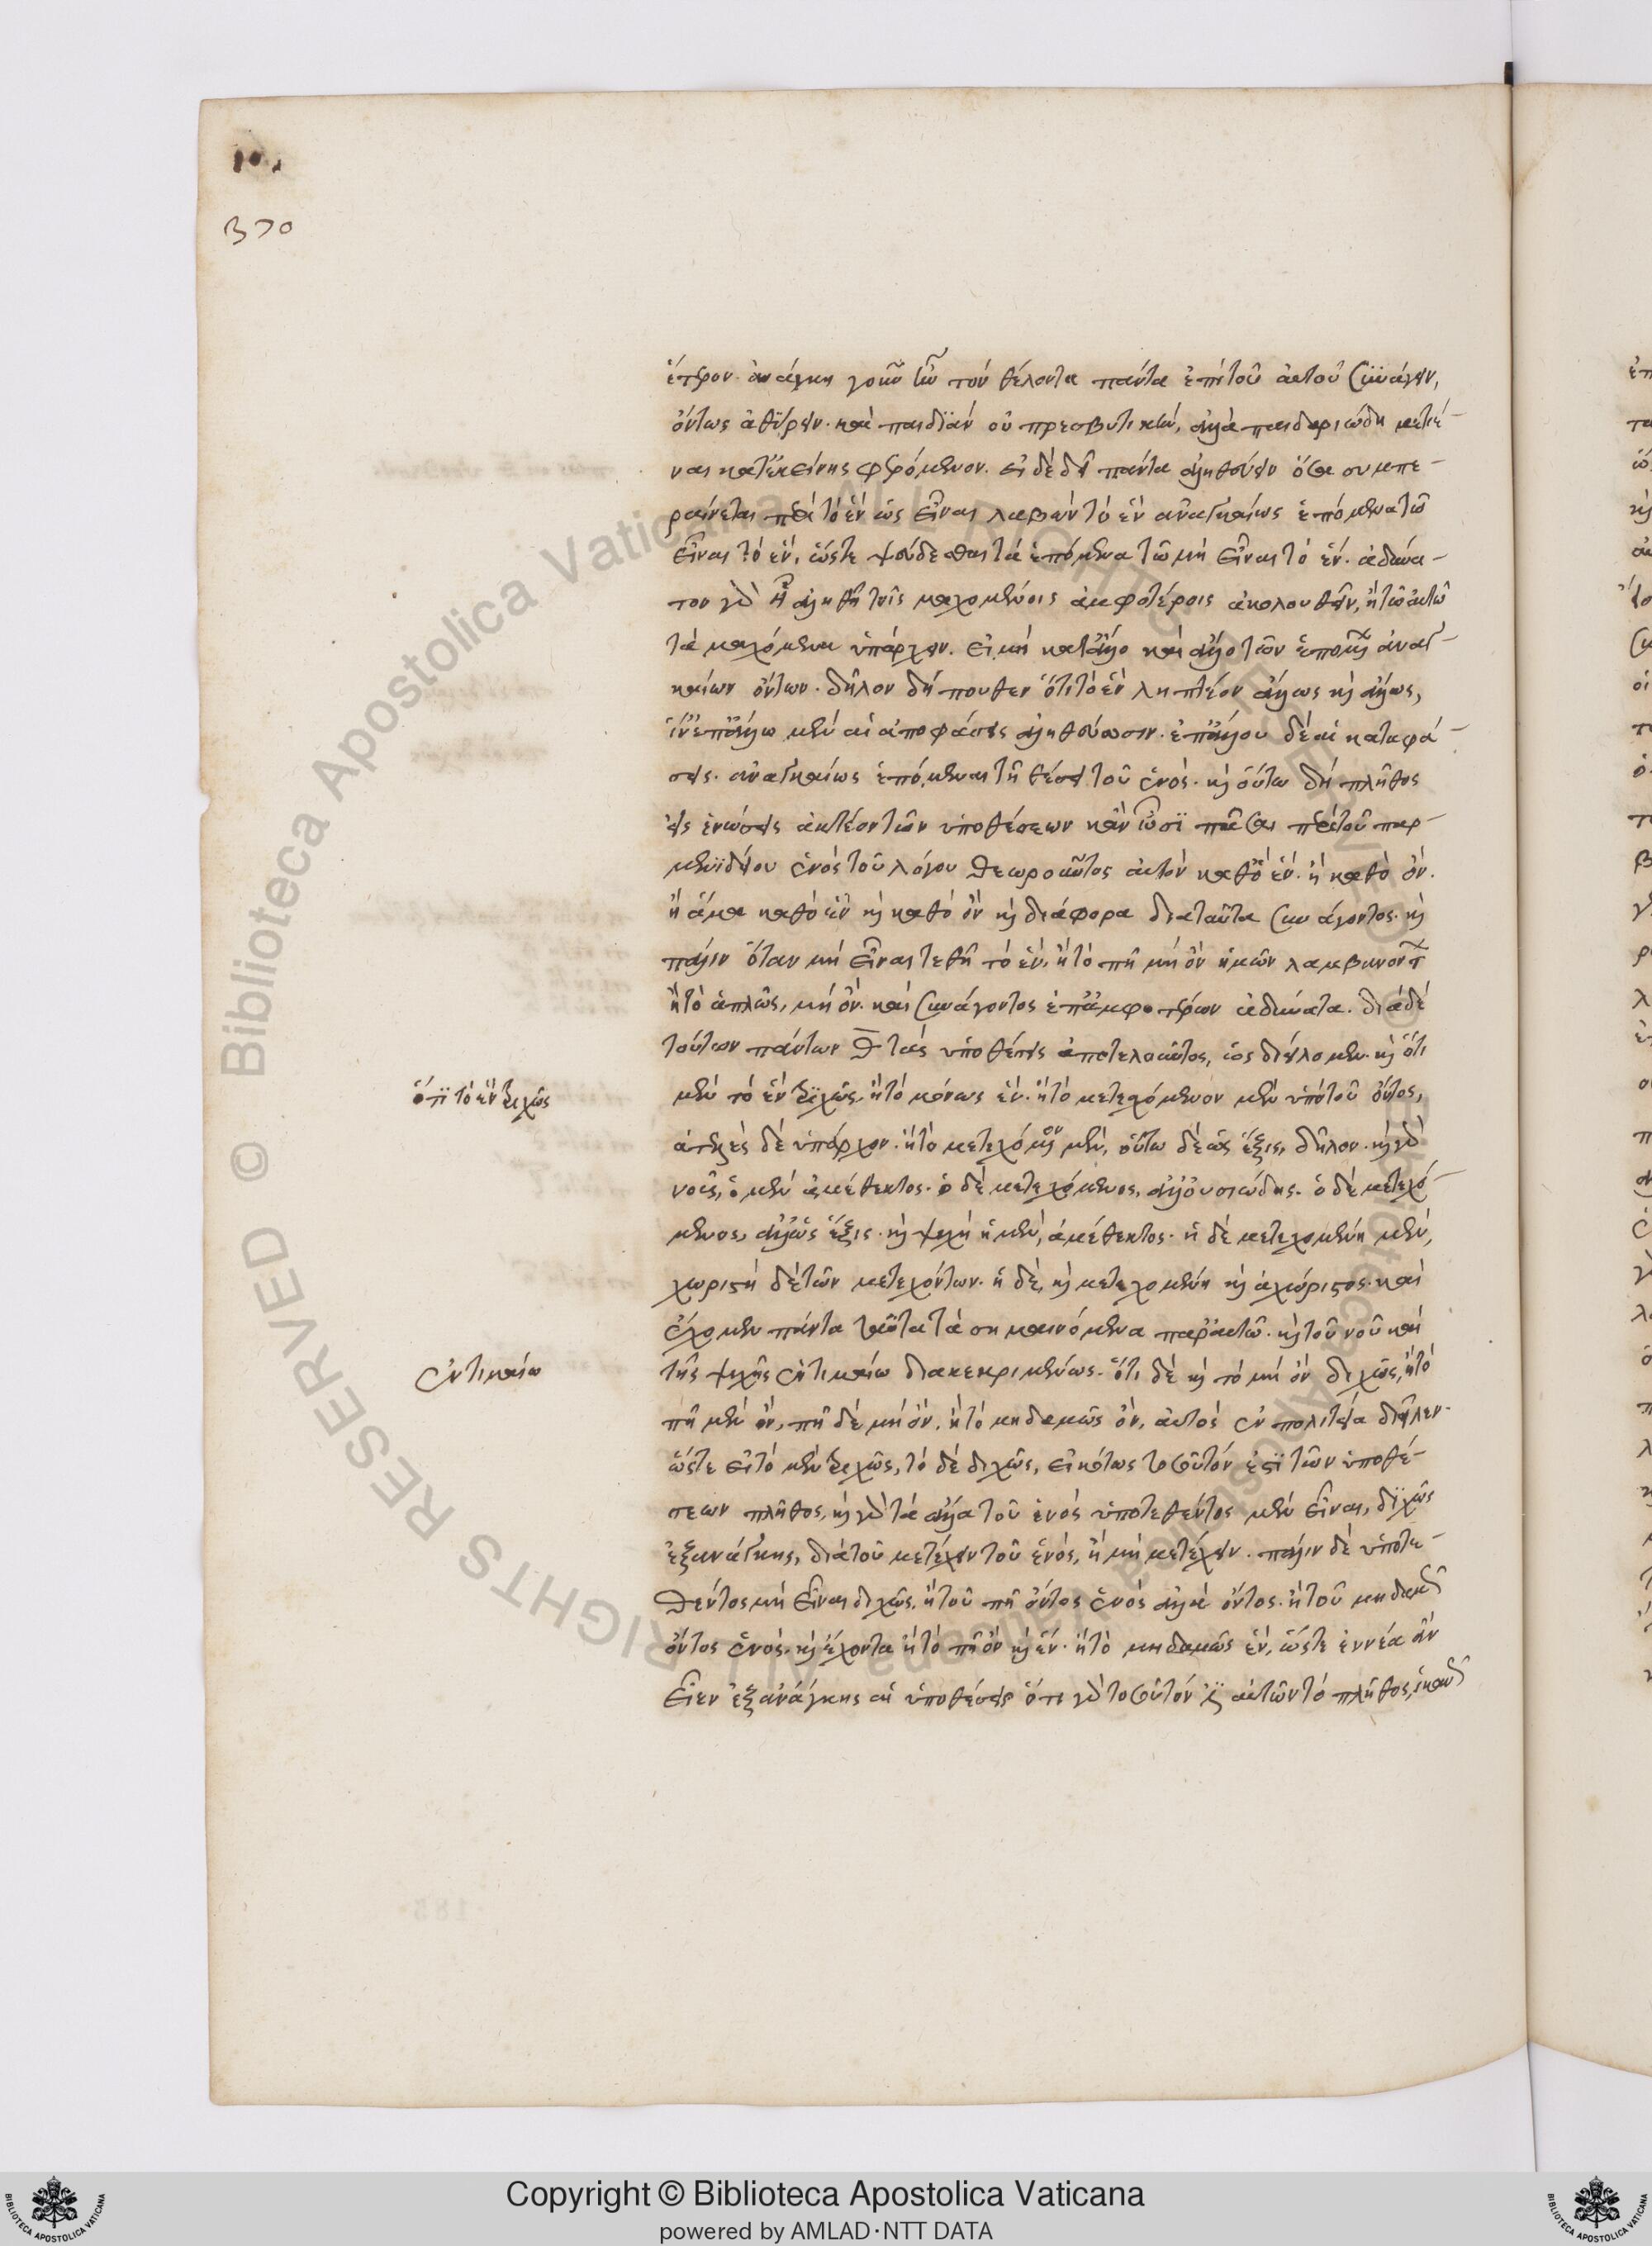 370
ἕτερον. ἀνάγκη γοῦν ἦν τὸν θέλοντα πάντα ἐπὶ τοῦ αὐτοῦ συνάγειν,
ὄντως ἀθύρειν. καὶ παιδιὰν οὐ πρεσβυτικὴν, ἀλλὰ παιδαριώδη μετιέ-
ναι κατ' ἐκείνης φερόμενον. εἰ δὲ δεῖ πάντα ἀληθεύειν ὅσα συμπε-
ραίνεται περὶ τὸ ἓν ὡς εἶναι λαβὼν τὸ ἓν ἀναγκαίως ἑπόμενα τῶ
εἶναι τὸ ἕν, ὥστε ψεύδεσθαι τὰ ἑπόμενα τῶ μὴ εἶναι τὸ ἕν. ἀδύνα-
τον γὰρ ἢ ἀληθῆ τοῖς μαχομένοις ἀμφοτέροις ἀκολουθεῖν, ἢ τῶ αὐτῶ
τὰ μαχόμενα ὑπάρχειν. εἰ μὴ κατ' ἄλλο καὶ ἄλλο τῶν ἑπομένων ἀναγ-
καίων ὄντων. δῆλον δήπουθεν ὅτι τὸ ἓν ληπτέον ἄλλως καὶ ἄλλως,
ἵν' ἐπ' ἄλλω μὲν αἱ ἀποφάσεις ἀληθεύωσιν. ἐπ' ἄλλου δὲ αἱ καταφά-
σεις. ἀναγκαίως ἑπόμεναι τῆ θέσει τοῦ ἑνός. καὶ οὕτω δὴ πλῆθος
εἰς ἑνώσεις ἀκτέον τῶν ὑποθέσεων κἂν ὦσι πᾶσαι περὶ τοῦ παρ-
μενιδείου ἑνὸς τοῦ λόγου θεωροῦντος αὐτὸν καθὸ ἕν. ἢ καθὸ ὄν.
ἢ ἅμα καθὸ ἓν καὶ καθὸ ὂν καὶ διάφορα διὰ ταῦτα συνάγοντος. καὶ
πάλιν ὅταν μὴ εἶναι τεθῆ τὸ ἕν, ἢ τὸ πῆ μὴ ὂν ἡμῶν λαμβανόντων
ἢ τὸ ἁπλῶς, μὴ ὄν. καὶ συνάγοντος ἐπ' ἀμφοτέρων ἀδύνατα. διὰ δὲ
τούτων πάντων θ τὰς ὑποθέσεις ἀποτελοῦντος, ὡς διείλομεν. καὶ ὅτι
ὅτι τὸ ἓν τριχῶς
μὲν τὸ ἓν τριχῶς, ἢ τὸ μόνως ἕν. ἢ τὸ μετεχόμενον μὲν ὑπὸ τοῦ ὄντος,
ἀτελὲς δὲ ὑπάρχον. ἢ τὸ μετεχόμενον μὲν, οὕτω δὲ ὡς ἕξις, δῆλον. καὶ γὰρ
νοῦς, ὁ μὲν ἀμέθεκτος. ὁ δὲ μετεχόμενος, ἀλλ' οὐσιώδης. ὁ δὲ μετεχό-
μενος, ἀλλ' ὡς ἕξις. καὶ ψυχὴ ἡ μὲν, ἀμέθεκτος. ἡ δὲ μετεχομένη μὲν,
χωριστὴ δὲ τῶν μετεχόντων. ἡ δὲ, καὶ μετεχομένη καὶ ἀχώριστος. καὶ
ἔχομεν πάντα ταῦτα τὰ σημαινόμενα παρ' αὐτῶ. καὶ τοῦ νοῦ καὶ
ἐν τιμαίω
τῆς ψυχῆς ἐν τιμαίω διακεκριμένως. ὅτι δὲ καὶ τὸ μὴ ὂν διχῶς, ἢ τὸ
πῆ μὲν ὂν, πῆ δὲ μὴ ὄν, ἢ τὸ μηδαμῶς ὄν, αὐτὸς ἐν πολιτεία διεῖλεν.
ὥστε εἰ τὸ μὲν τριχῶς, τὸ δὲ διχῶς, εἰκότως τοσοῦτόν ἐστι τῶν ὑποθέ-
σεων πλῆθος, καὶ γὰρ τὰ ἄλλα τοῦ ἑνὸς ὑποτεθέντος μὲν εἶναι, διχῶς
ἐξ ἀνάγκης, διὰ τοῦ μετέχειν τοῦ ἑνός, ἢ μὴ μετέχειν. πάλιν δὲ ὑποτε-
θέντος μὴ εἶναι διχῶς, ἢ τοῦ πῆ ὄντος ἑνὸς ἀλλὰ ὄντος. ἢ τοῦ μηδαμῶς
ὄντος ἑνός. καὶ ἔχοντα ἢ τὸ πῆ ὂν καὶ ἕν. ἢ τὸ μηδαμῶς ἕν, ὥστε ἐννέα ἂν
εἶεν ἐξ ἀνάγκης αἱ ὑποθέσεις ὅτι γὰρ τοσοῦτόν ἐστι αὐτῶν τὸ πλῆθος, ἱκανῶς
Copyright © Biblioteca Apostolica Vaticana
powered by AMLAD·NTT DATA